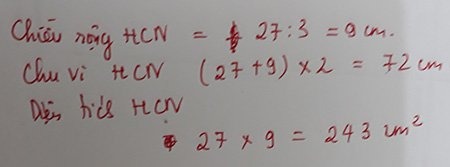 Chiều rộng HCN = 27 : 3 = 9 cm.
Chu vi HCN (27 + 9) × 2 = 72 cm
Diện tích HCN
27 × 9 = 243 cm²